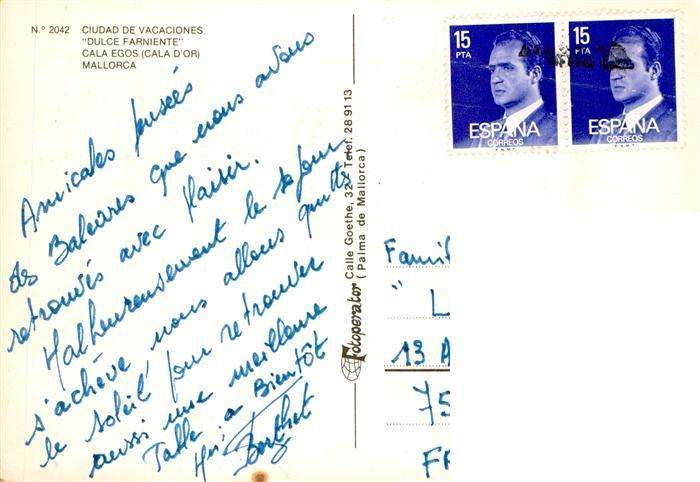 N.º 2042 CIUDAD DE VACACIONES
"DULCE FARNIENTE"
CALA EGOS (CALA D'OR)
MALLORCA
Amicales pensées
des Baléares que nous avons
retrouvés avec plaisir.
Malheureusement le séjour
s'achève nous allons quitter
le soleil pour retrouver
aussi une meilleure
Table à Bientôt
Berthet
Fotoperator Calle Goethe, 32 - Telef. 28 91 13
(Palma de Mallorca)
15 PTA
ESPAÑA
CORREOS
15 PTA
ESPAÑA
CORREOS
Famil
" L
13 A
75
FR